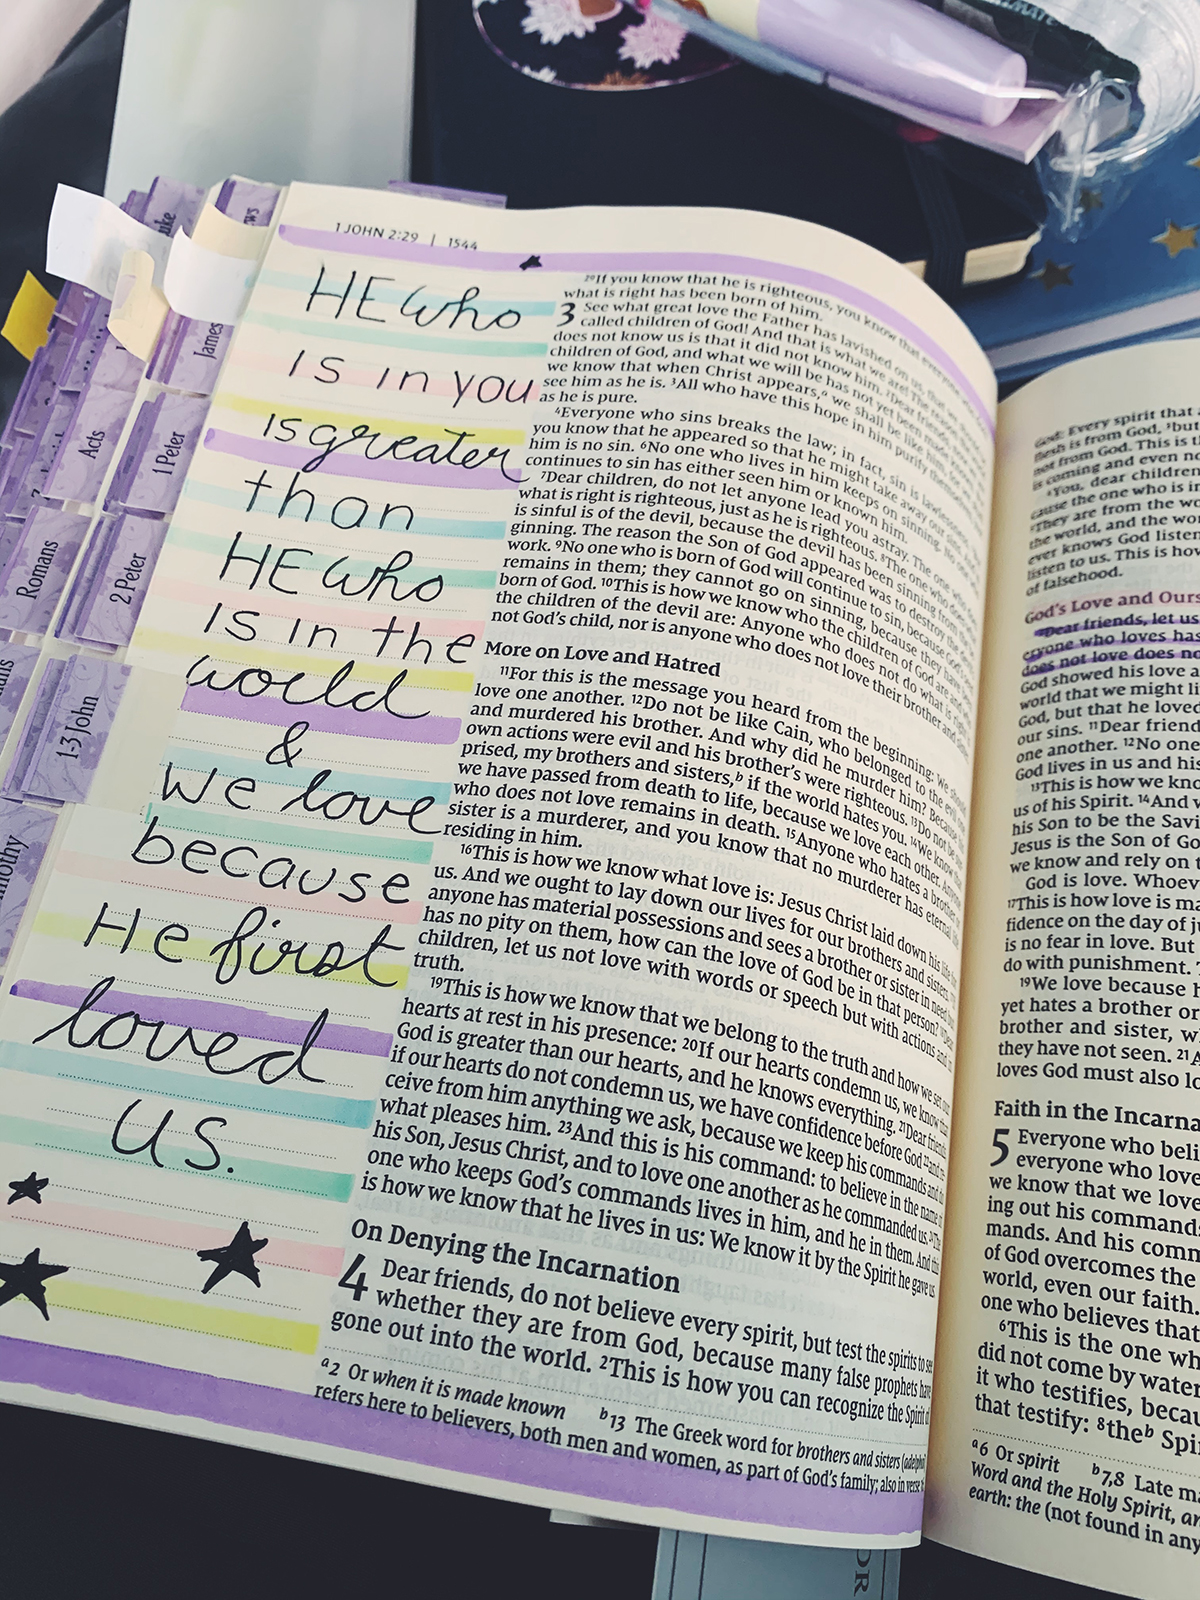 1 JOHN 2:29 | 1544
HE who
is in you
is greater
than
HE who
is in the
world
&
we love
because
He first
loved
us.
²⁹If you know that he is righteous, you know that
what is right has been born of him.
3 See what great love the Father has lavished on us, that
called children of God! And that is what we are! The
does not know us is that it did not know him.
children of God, and what we will be has not yet been
we know that when Christ appears,ᵃ we shall be like him,
see him as he is. ³All who have this hope in him purify
as he is pure.
⁴Everyone who sins breaks the law; in fact, sin is
you know that he appeared so that he might take away our
him is no sin. ⁶No one who lives in him keeps on sinning.
continues to sin has either seen him or known him.
⁷Dear children, do not let anyone lead you astray. The one
what is right is righteous, just as he is righteous. ⁸The one who
is sinful is of the devil, because the devil has been sinning from the
ginning. The reason the Son of God appeared was to destroy the
work. ⁹No one who is born of God will continue to sin, because
remains in them; they cannot go on sinning, because they have
born of God. ¹⁰This is how we know who the children of God are
the children of the devil are: Anyone who does not do what is right
not God's child, nor is anyone who does not love their brother and
More on Love and Hatred
¹¹For this is the message you heard from the beginning: We
love one another. ¹²Do not be like Cain, who belonged to the evil
and murdered his brother. And why did he murder him? Because
own actions were evil and his brother's were righteous. ¹³Do not be
prised, my brothers and sisters,ᵇ if the world hates you. ¹⁴We know
we have passed from death to life, because we love each other.
who does not love remains in death. ¹⁵Anyone who hates a brother
sister is a murderer, and you know that no murderer has eternal
residing in him.
¹⁶This is how we know what love is: Jesus Christ laid down his life
us. And we ought to lay down our lives for our brothers and sisters.
anyone has material possessions and sees a brother or sister in need
has no pity on them, how can the love of God be in that person?
children, let us not love with words or speech but with actions and
truth.
¹⁹This is how we know that we belong to the truth and how we set our
hearts at rest in his presence: ²⁰If our hearts condemn us, we know
God is greater than our hearts, and he knows everything. ²¹Dear friends
if our hearts do not condemn us, we have confidence before God ²²and
ceive from him anything we ask, because we keep his commands and do
what pleases him. ²³And this is his command: to believe in the name
his Son, Jesus Christ, and to love one another as he commanded us.
one who keeps God's commands lives in him, and he in them. And this
is how we know that he lives in us: We know it by the Spirit he gave us
On Denying the Incarnation
4 Dear friends, do not believe every spirit, but test the spirits to see
whether they are from God, because many false prophets have
gone out into the world. ²This is how you can recognize the Spirit
ᵃ2 Or when it is made known ᵇ13 The Greek word for brothers and sisters (adelphoi
refers here to believers, both men and women, as part of God's family; also in verse
God: Every spirit that
flesh is from God, ³but
not from God. This is
is coming and even no
⁴You, dear children
cause the one who is in
⁵They are from the wo
the world, and the wo
ever knows God listen
listen to us. This is how
of falsehood.
God's Love and Ours
⁷Dear friends, let us
eryone who loves has
does not love does no
God showed his love a
world that we might li
God, but that he loved
our sins. ¹¹Dear friend
one another. ¹²No one
God lives in us and his
¹³This is how we kno
us of his Spirit. ¹⁴And
his Son to be the Savi
Jesus is the Son of Go
we know and rely on t
God is love. Whoev
¹⁷This is how love is ma
fidence on the day of ju
is no fear in love. But
do with punishment.
¹⁹We love because h
yet hates a brother or
brother and sister, w
they have not seen. ²¹A
loves God must also lo
Faith in the Incarna
5 Everyone who beli
everyone who love
we know that we love
ing out his command
mands. And his comm
of God overcomes the
world, even our faith.
one who believes that
⁶This is the one wh
did not come by water
it who testifies, becau
that testify: ⁸theᵇ Spi
ᵃ6 Or spirit ᵇ7,8 Late ma
Word and the Holy Spirit, an
earth: the (not found in any
James
Acts
1 Peter
Romans
2 Peter
1-3 John
imothy
OR